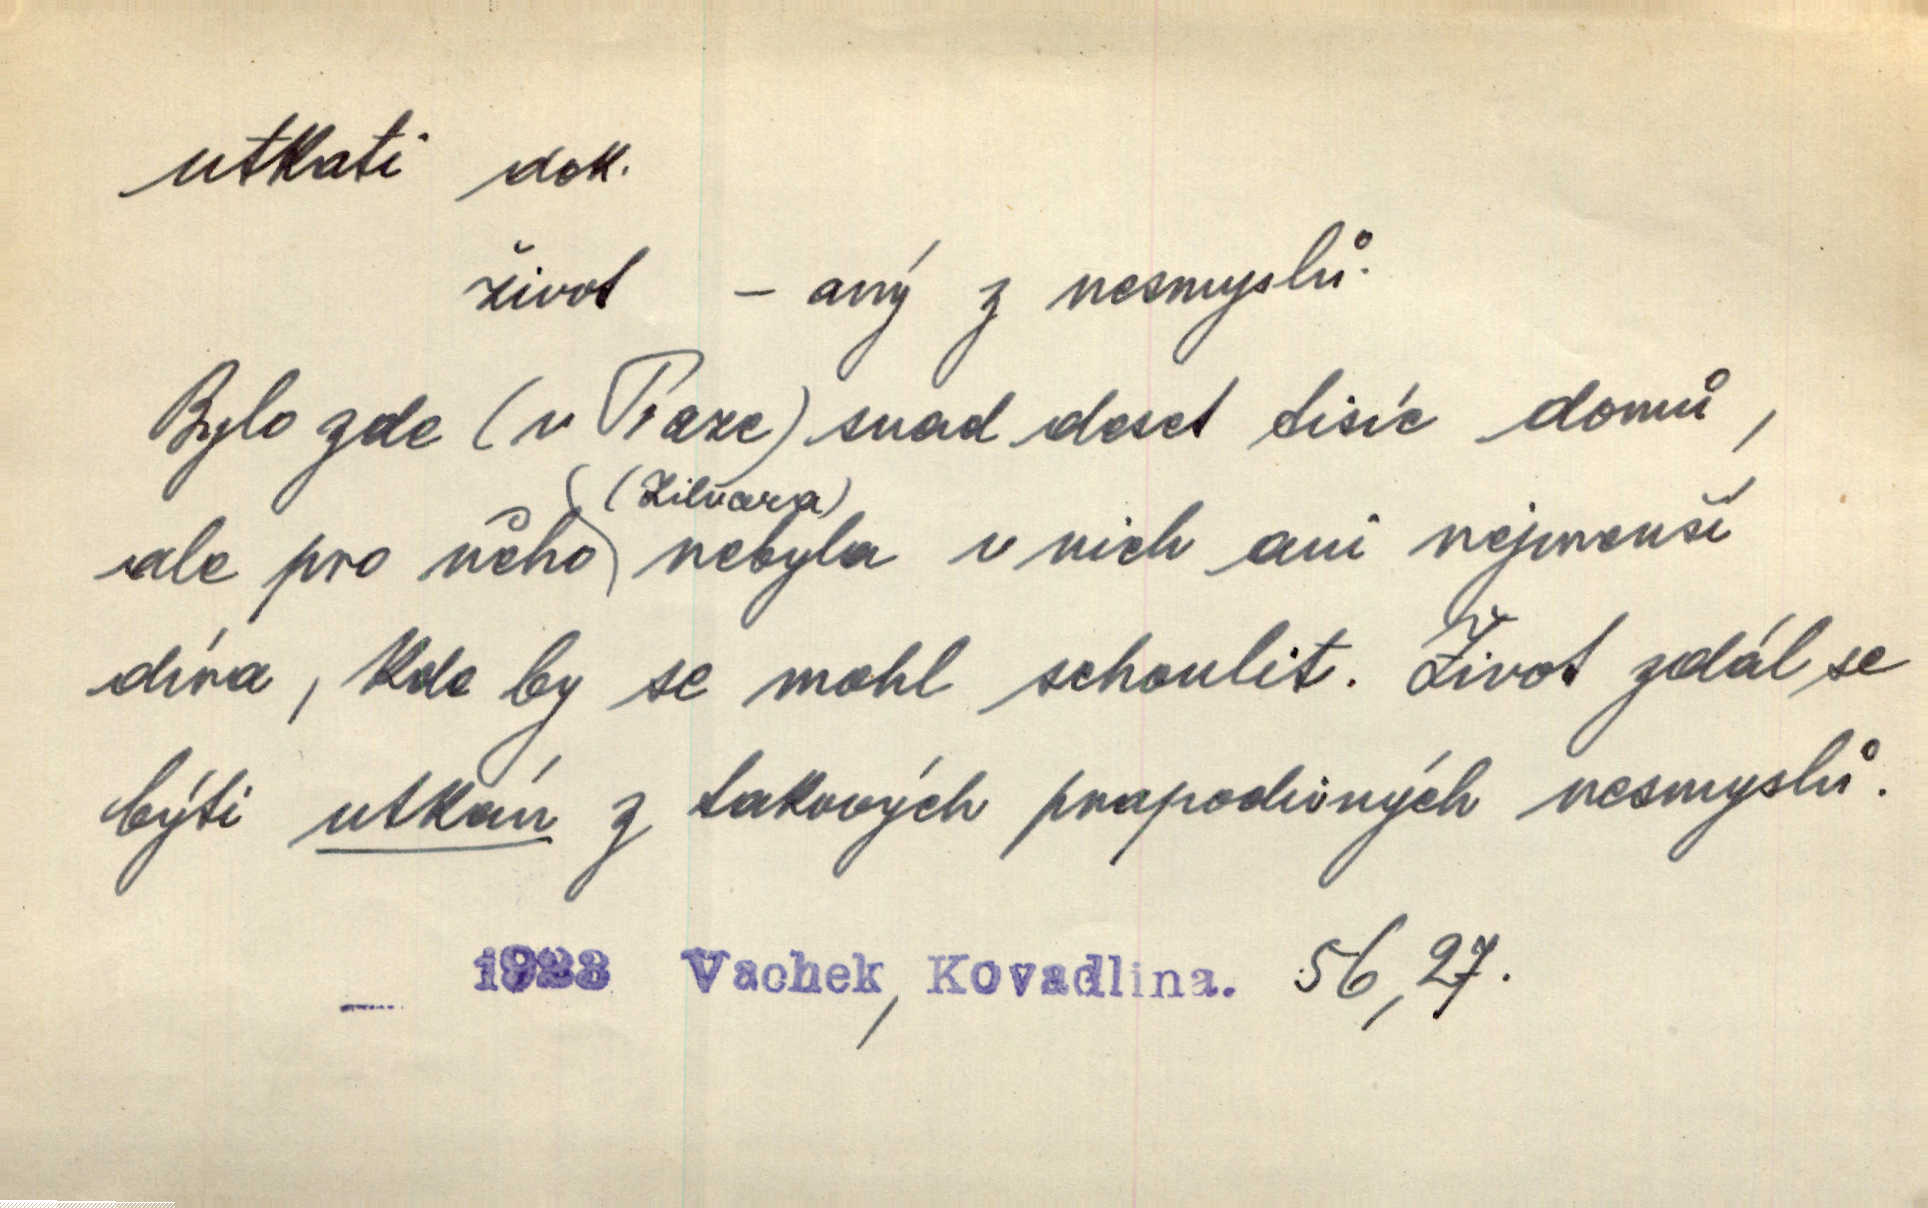 utkati dok.
život – aný z nesmyslů.
Bylo zde (v Praze) snad deset tisíc domů,
(Žilvara)
ale pro něho nebyla v nich ani nejmenší
díra, kde by se mohl schoulit. Život zdál se
býti utkán z takových prapodivných nesmyslů.
Vachek, Kovadlina. 56, 27.